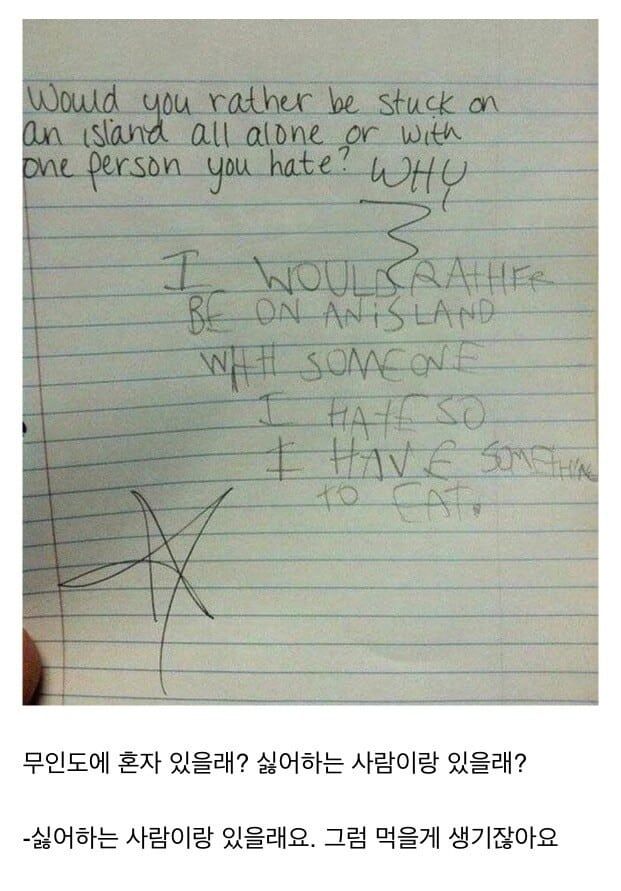 Would you rather be stuck on
an island all alone or with
one person you hate? WHY
I WOULD RATHER
BE ON AN iSLAND
WITH SOMEONE
I HATE SO
I HAVE SOMETHING
TO EAT.
무인도에 혼자 있을래? 싫어하는 사람이랑 있을래?
-싫어하는 사람이랑 있을래요. 그럼 먹을게 생기잖아요